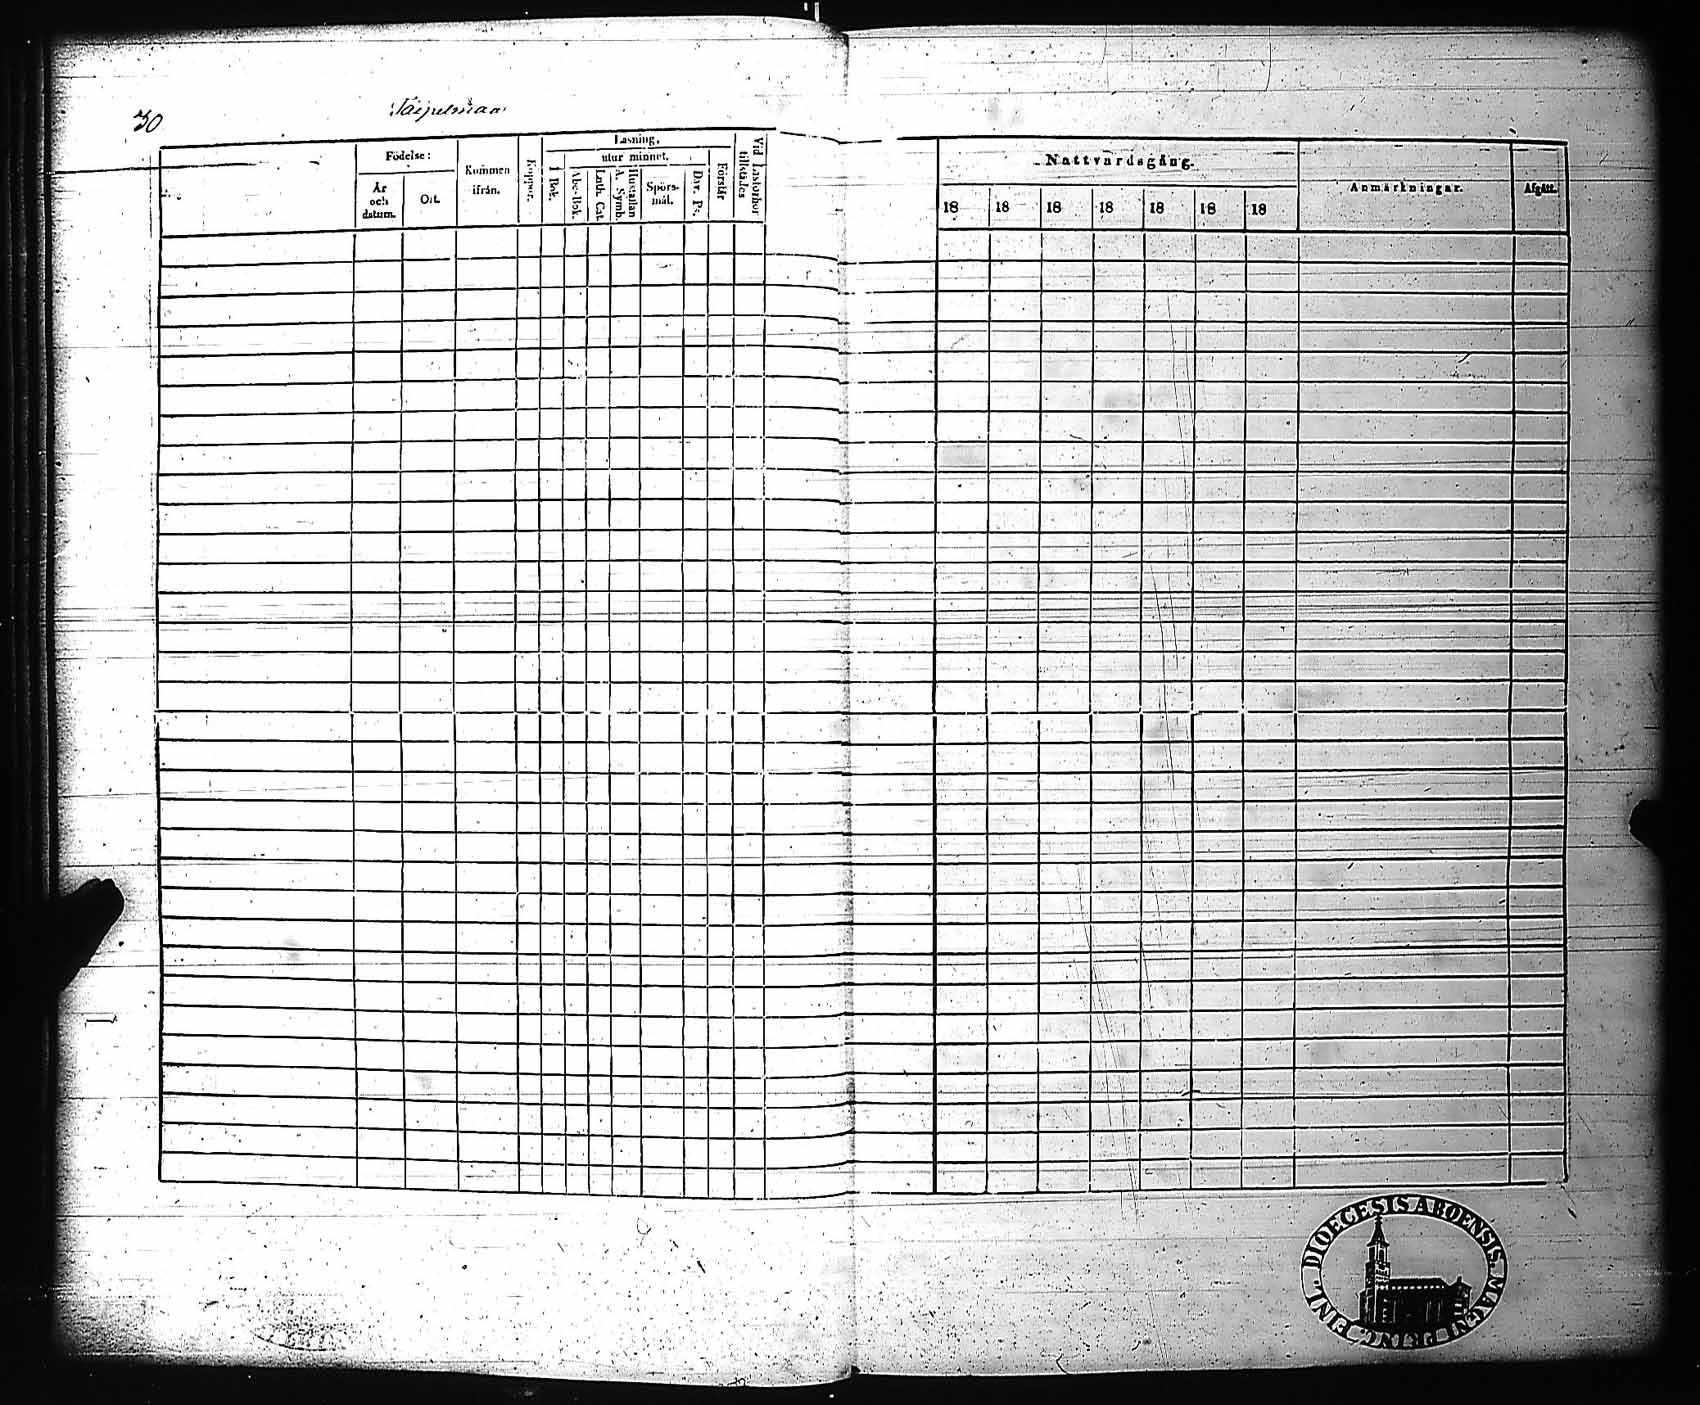 30
Födelse:
År
och
datum.
Ort.
Kommen
ifrån.
Koppor.
Läsning,
I Bok.
utur minnet.
Abc-Bok.
Luth. Cat.
Hustaflan
A. Symb.
Spörs-
mål.
Dav. Ps.
Förstår
Vid Läsförhör
tillstädes
Nattvardsgång.
18 18 18 18 18 18 18
Anmärkningar.
Afgått.
DIOECESIS ABOENSIS. MAGNI PRINC. FINL.